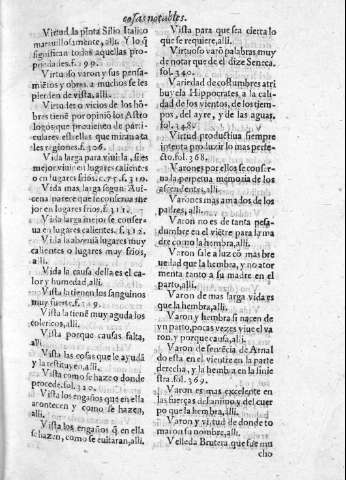 cosas notables.
Virtud la pinta Silio Italico
marauillosamente, alli. Y lo q̃
significan todas aquellas pro-
priedades. f. 299.
Virtuoso varon y sus pensa-
miētos y obras a muchos se les
pierden de vista, alli.
Virtudes o vicios de los hō-
bres tiene por opiniō los Astro
logos que prouienen de parti-
culares estrellas que miran a ta
les regiones. f. 306.
Vida larga para viuirla, si es
mejor viuir en lugares calientes
o en lugares frios.
Vida mas larga segun Aui-
cena parece que se conserua me
jor en lugares frios, f. 311.
Vida larga mejor se conser-
ua en lugares calientes. f. 312.
Vida la abreuia lugares muy
calientes o lugares muy frios,
alli.
Vida la causa della es el ca-
lor y humedad, alli.
Vista la tienen los sanguinos
muy fuerte, f.
Vista la tienē muy aguda los
colericos, alli.
Vista porque causas falta,
alli.
Vista las cosas que le ayudā
y la restituyen, alli.
Vista como se haze o donde
procede. fol. 320.
Vista los engaños que en ella
acontecen y como se hazen,
alli.
Vista los engaños q̃ en ella
se hazen, como se euitaran, alli.
Vista para que sea cierta lo
que se requiere, alli.
Virtuoso varō palabras muy
de notar que de el dize Seneca.
fol. 340.
Variedad de costumbres atri
buy ela Hippocrates a la cali-
dad de los vientos, de los tiem-
pos, del ayre, y de las aguas.
fol. 348.
Virtud productiua siempre
intenta produzir lo mas perfe-
cto. fol. 368.
Varones por ellos se conser-
ua la perpetua memoria de los
ascendientes, alli.
Varones mas amados de los
padres, alli.
Varon no es de tanta pesa-
dumbre en el viētre para la ma
dre como la hembra, alli.
Varon sale a luz cō mas bre
uedad que la hembra, y no ator
menta tanto a su madre en el
parto, alli.
Varon de mas larga vida es
que la hembra, alli.
Varon y hembra si nacen de
vn parto, pocas vezes viue el va
ron, y porque causa, alli.
Varon de sentēcia de Arnal
do esta en el vientre en la parte
derecha, y la hembra en la sinie
stra. fol. 369.
Varon es mas excelente en
las fuerças del animo y del cuer
po que la hembra, alli.
Varon y virtud de donde to
maron su nombre, alli.
Velleda Brutera que fue mu
cho